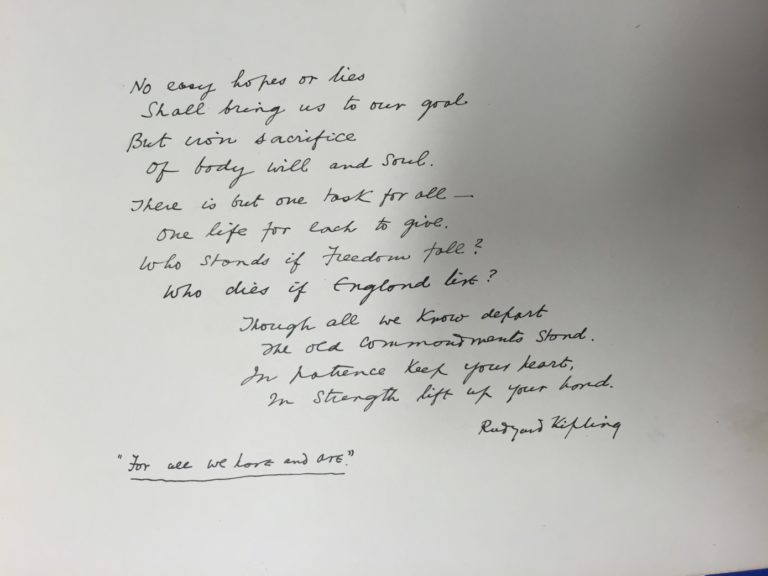 No easy hopes or lies
Shall bring us to our goal
But iron sacrifice
Of body will and soul.
There is but one task for all —
One life for each to give.
Who stands if Freedom fall?
Who dies if England live?
Though all we know depart
The old commandments stand.
In patience keep your heart,
In strength lift up your hand.
Rudyard Kipling
"For all we have and are."